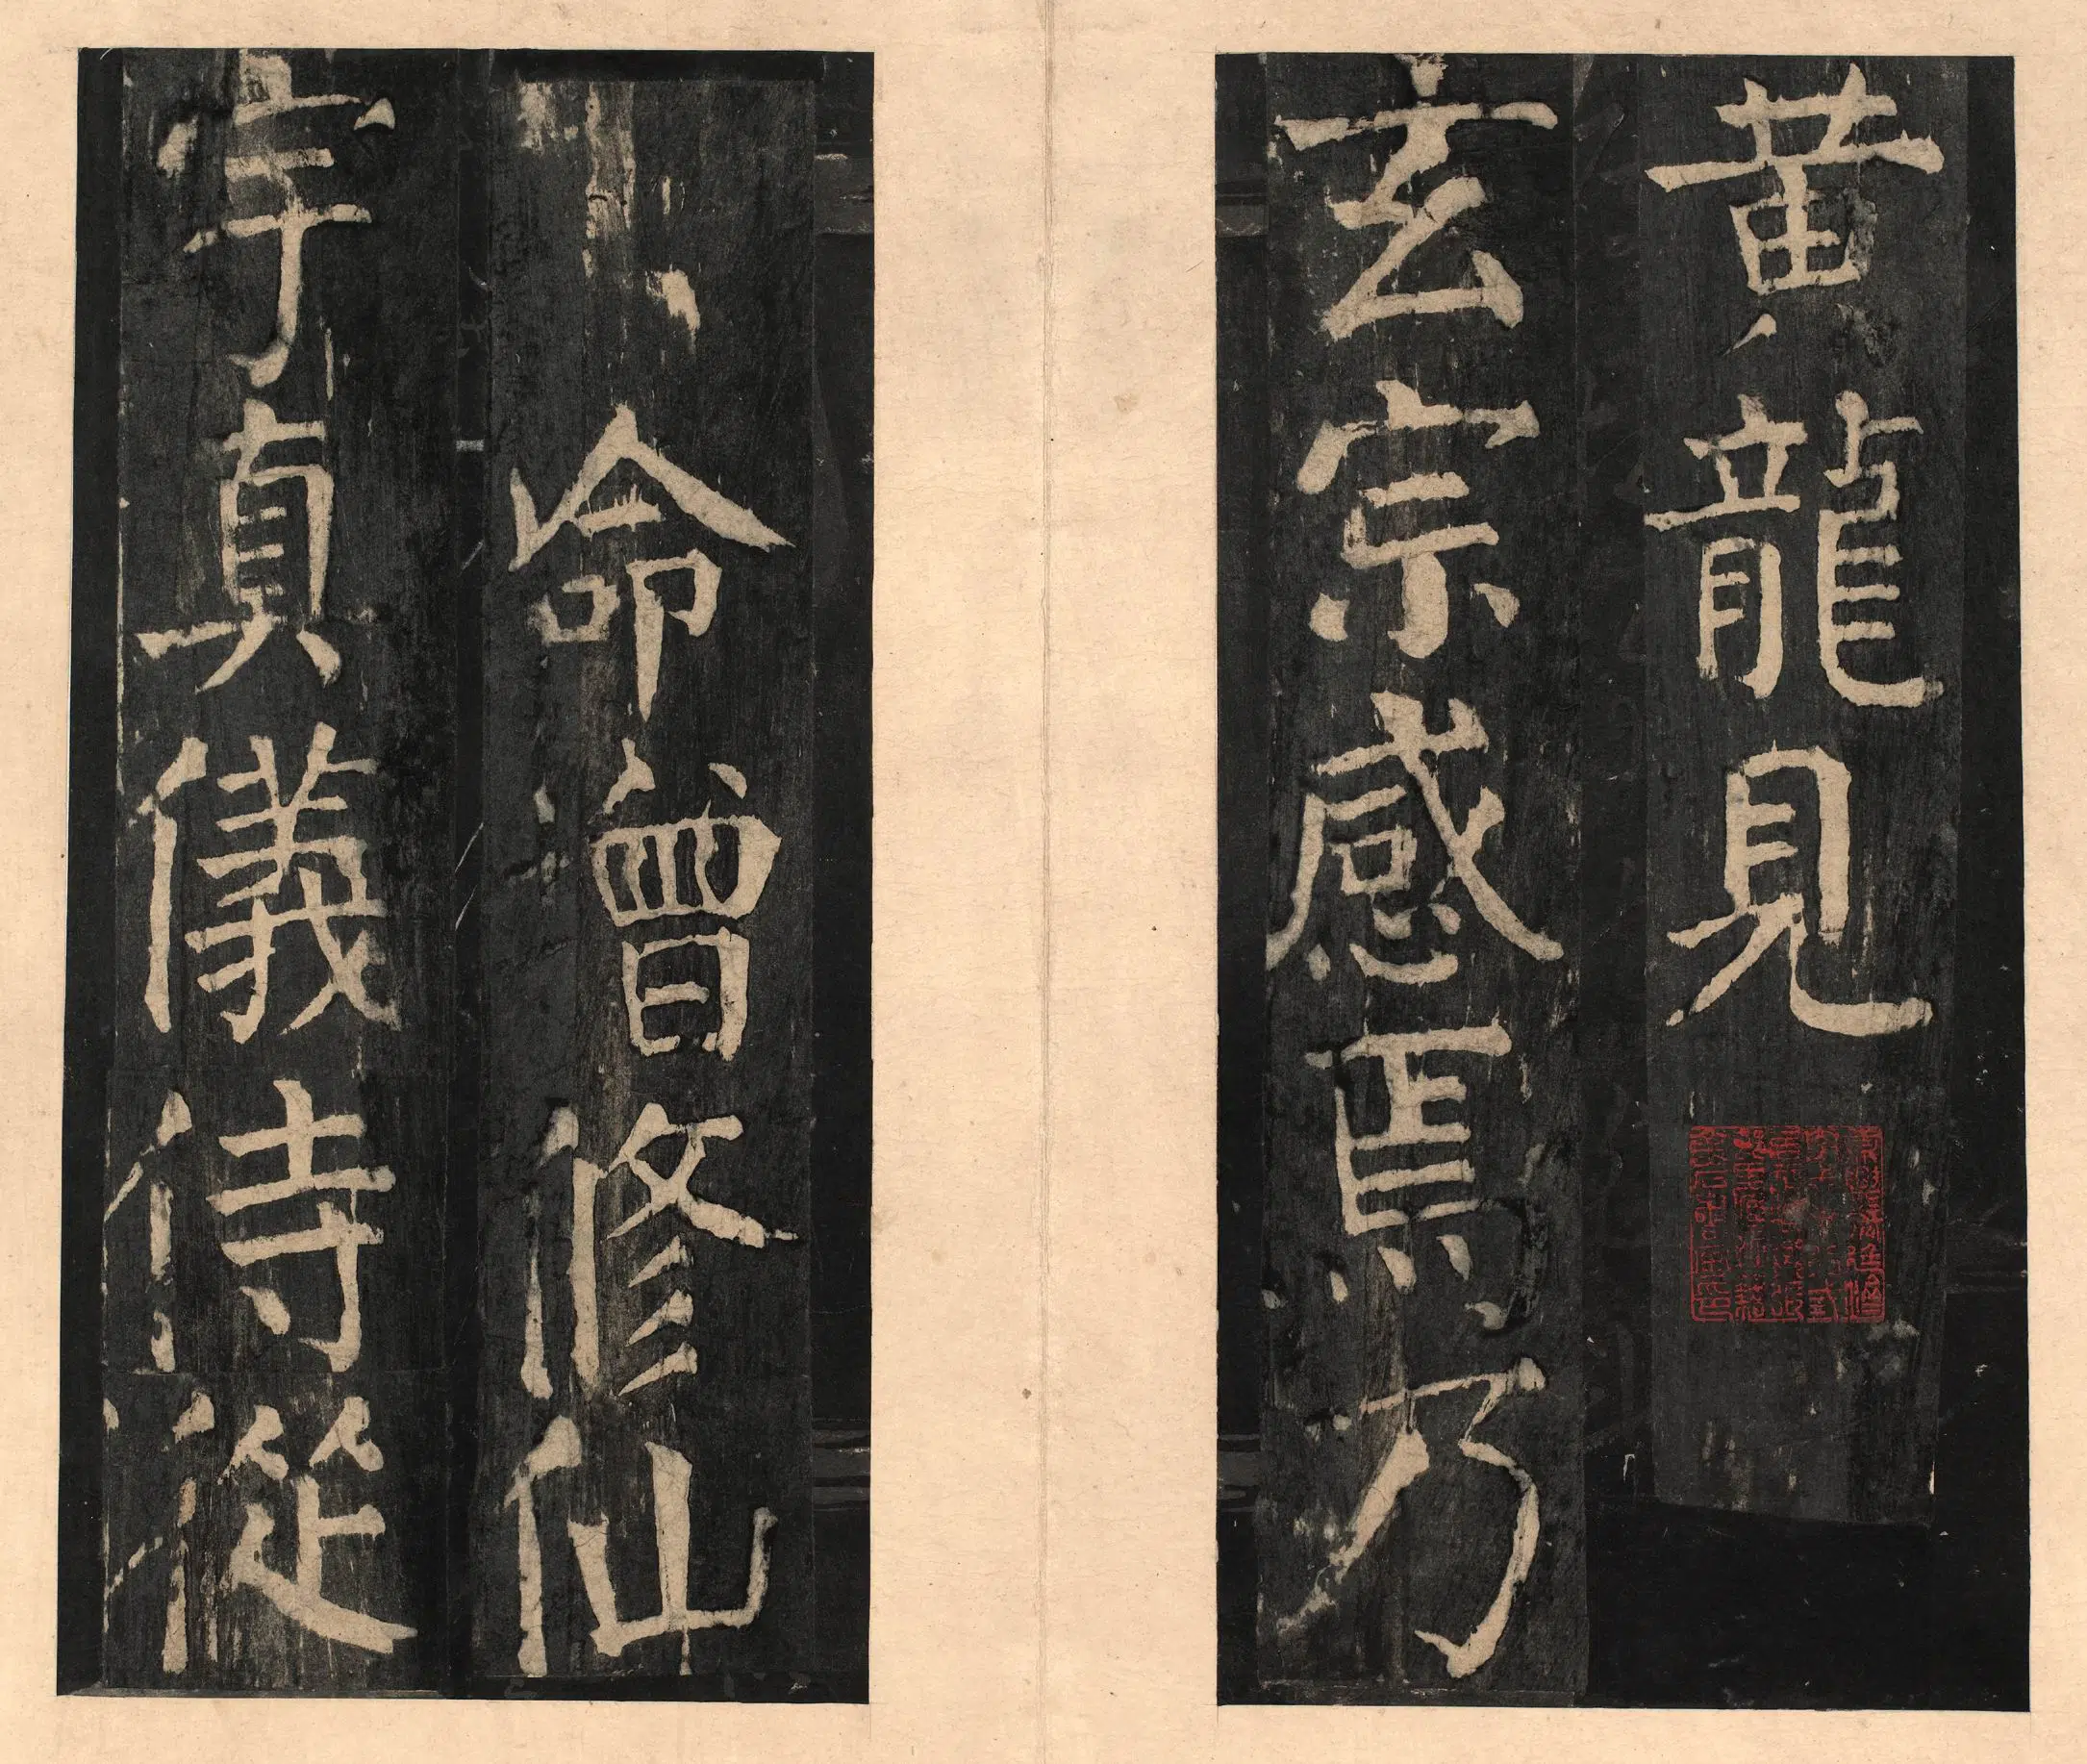 黄龍見
玄宗感焉乃
命曾修仙
宇真儀侍從